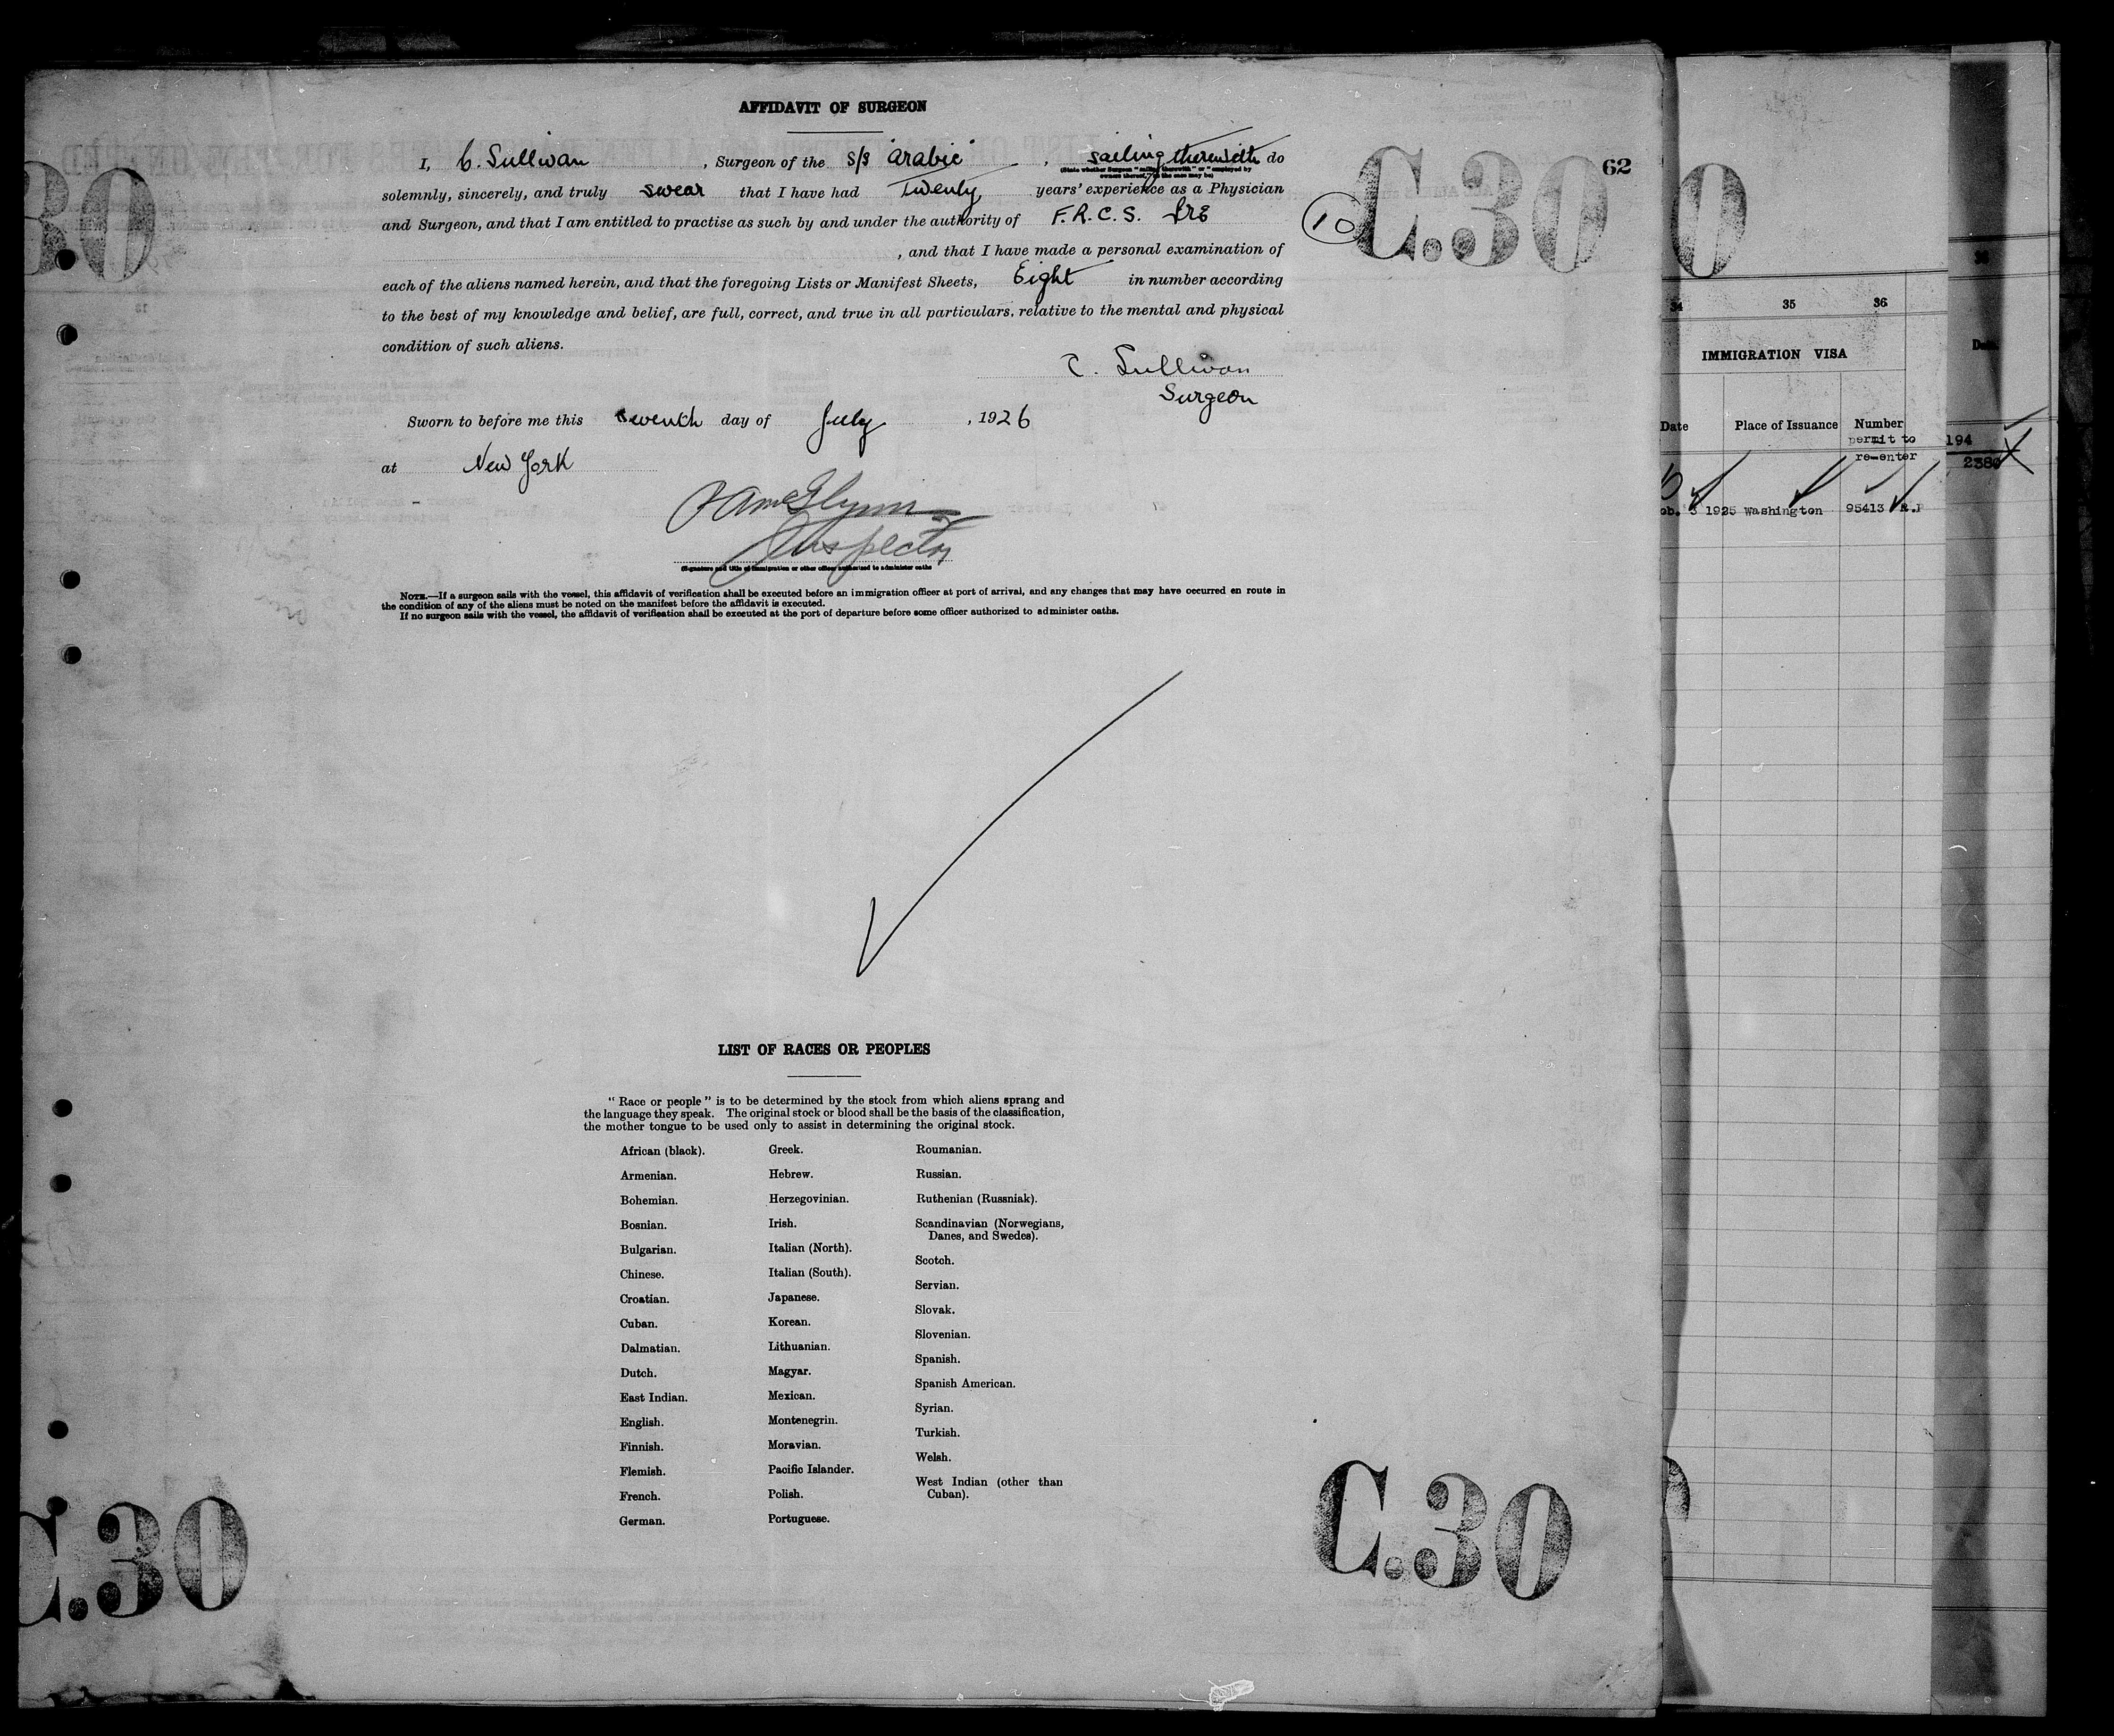 AFFIDAVIT OF SURGEON
I, C. Sullivan, Surgeon of the s/s "Arabic", sailing therewith do
(State whether Surgeon "sailing therewith" or "employed by
owners thereof," as the case may be)
solemnly, sincerely, and truly swear that I have had Twenty years' experience as a Physician
and Surgeon, and that I am entitled to practise as such by and under the authority of F.R.C.S. Ire
, and that I have made a personal examination of
each of the aliens named herein, and that the foregoing Lists or Manifest Sheets, Eight in number according
to the best of my knowledge and belief, are full, correct, and true in all particulars, relative to the mental and physical
condition of such aliens.
C. Sullivan
Surgeon
Sworn to before me this seventh day of July, 1926
at New York
Inspector
(Signature and title of immigration or other officer authorized to administer oaths
NOTE.—If a surgeon sails with the vessel, this affidavit of verification shall be executed before an immigration officer at port of arrival, and any changes that may have occurred en route in
the condition of any of the aliens must be noted on the manifest before the affidavit is executed.
If no surgeon sails with the vessel, the affidavit of verification shall be executed at the port of departure before some officer authorized to administer oaths.
LIST OF RACES OR PEOPLES
"Race or people" is to be determined by the stock from which aliens sprang and
the language they speak. The original stock or blood shall be the basis of the classification,
the mother tongue to be used only to assist in determining the original stock.
African (black).
Armenian.
Bohemian.
Bosnian.
Bulgarian.
Chinese.
Croatian.
Cuban.
Dalmatian.
Dutch.
East Indian.
English.
Finnish.
Flemish.
French.
German.
Greek.
Hebrew.
Herzegovinian.
Irish.
Italian (North).
Italian (South).
Japanese.
Korean.
Lithuanian.
Magyar.
Mexican.
Montenegrin.
Moravian.
Pacific Islander.
Polish.
Portuguese.
Roumanian.
Russian.
Ruthenian (Russniak).
Scandinavian (Norwegians,
Danes, and Swedes).
Scotch.
Servian.
Slovak.
Slovenian.
Spanish.
Spanish American.
Syrian.
Turkish.
Welsh.
West Indian (other than
Cuban).
10
C.30
62
30
C.30
C.30
0
34 35 36
IMMIGRATION VISA
Date Place of Issuance Number
permit to
re-enter
3 1925 Washington 95413 R.P
36
194
2380